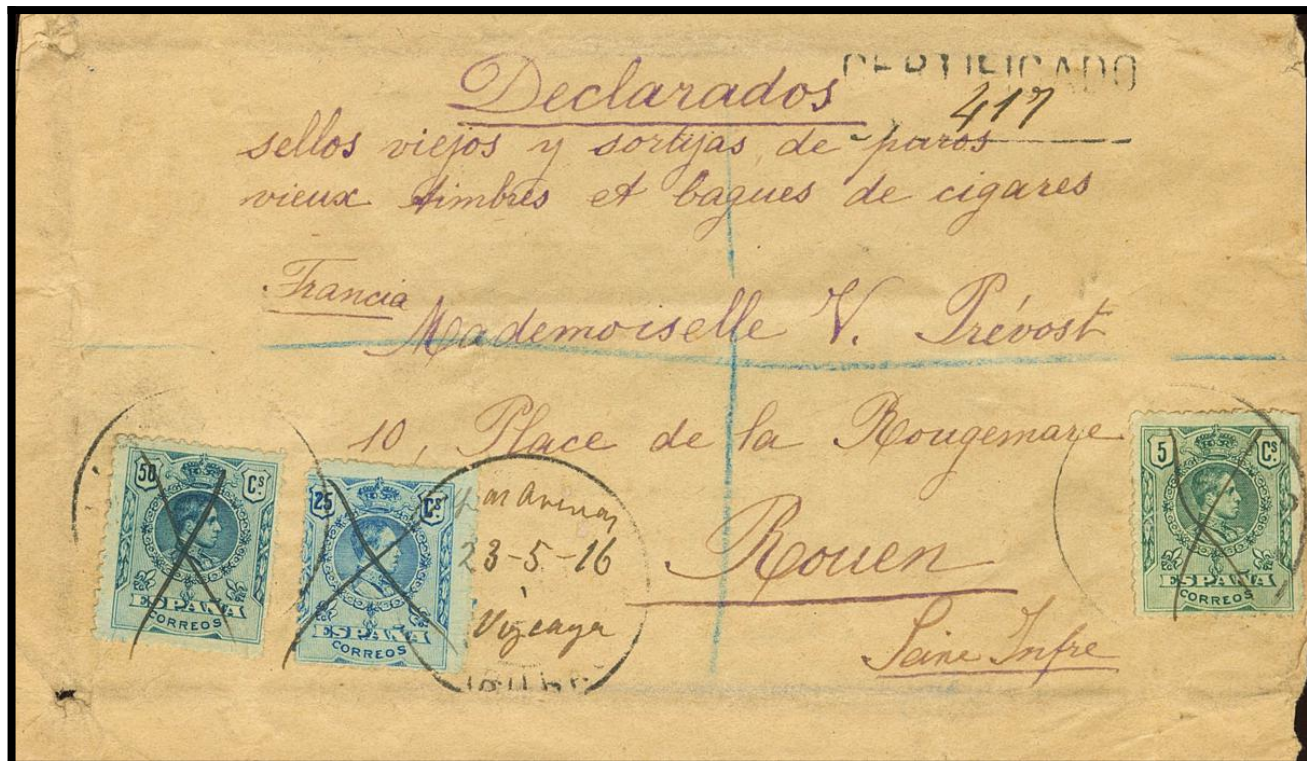 CERTIFICADO
Declarados
417
sellos viejos y sortijas de puros
vieux timbres et bagues de cigares
Francia
Mademoiselle V. Prévost
10, Place de la Rougemare
Rouen
Seine Infre
50 Cs.
ESPAÑA
CORREOS
25 Cs.
ESPAÑA
CORREOS
Las Arenas
23-5-16
Vizcaya
5 Cs.
ESPAÑA
CORREOS